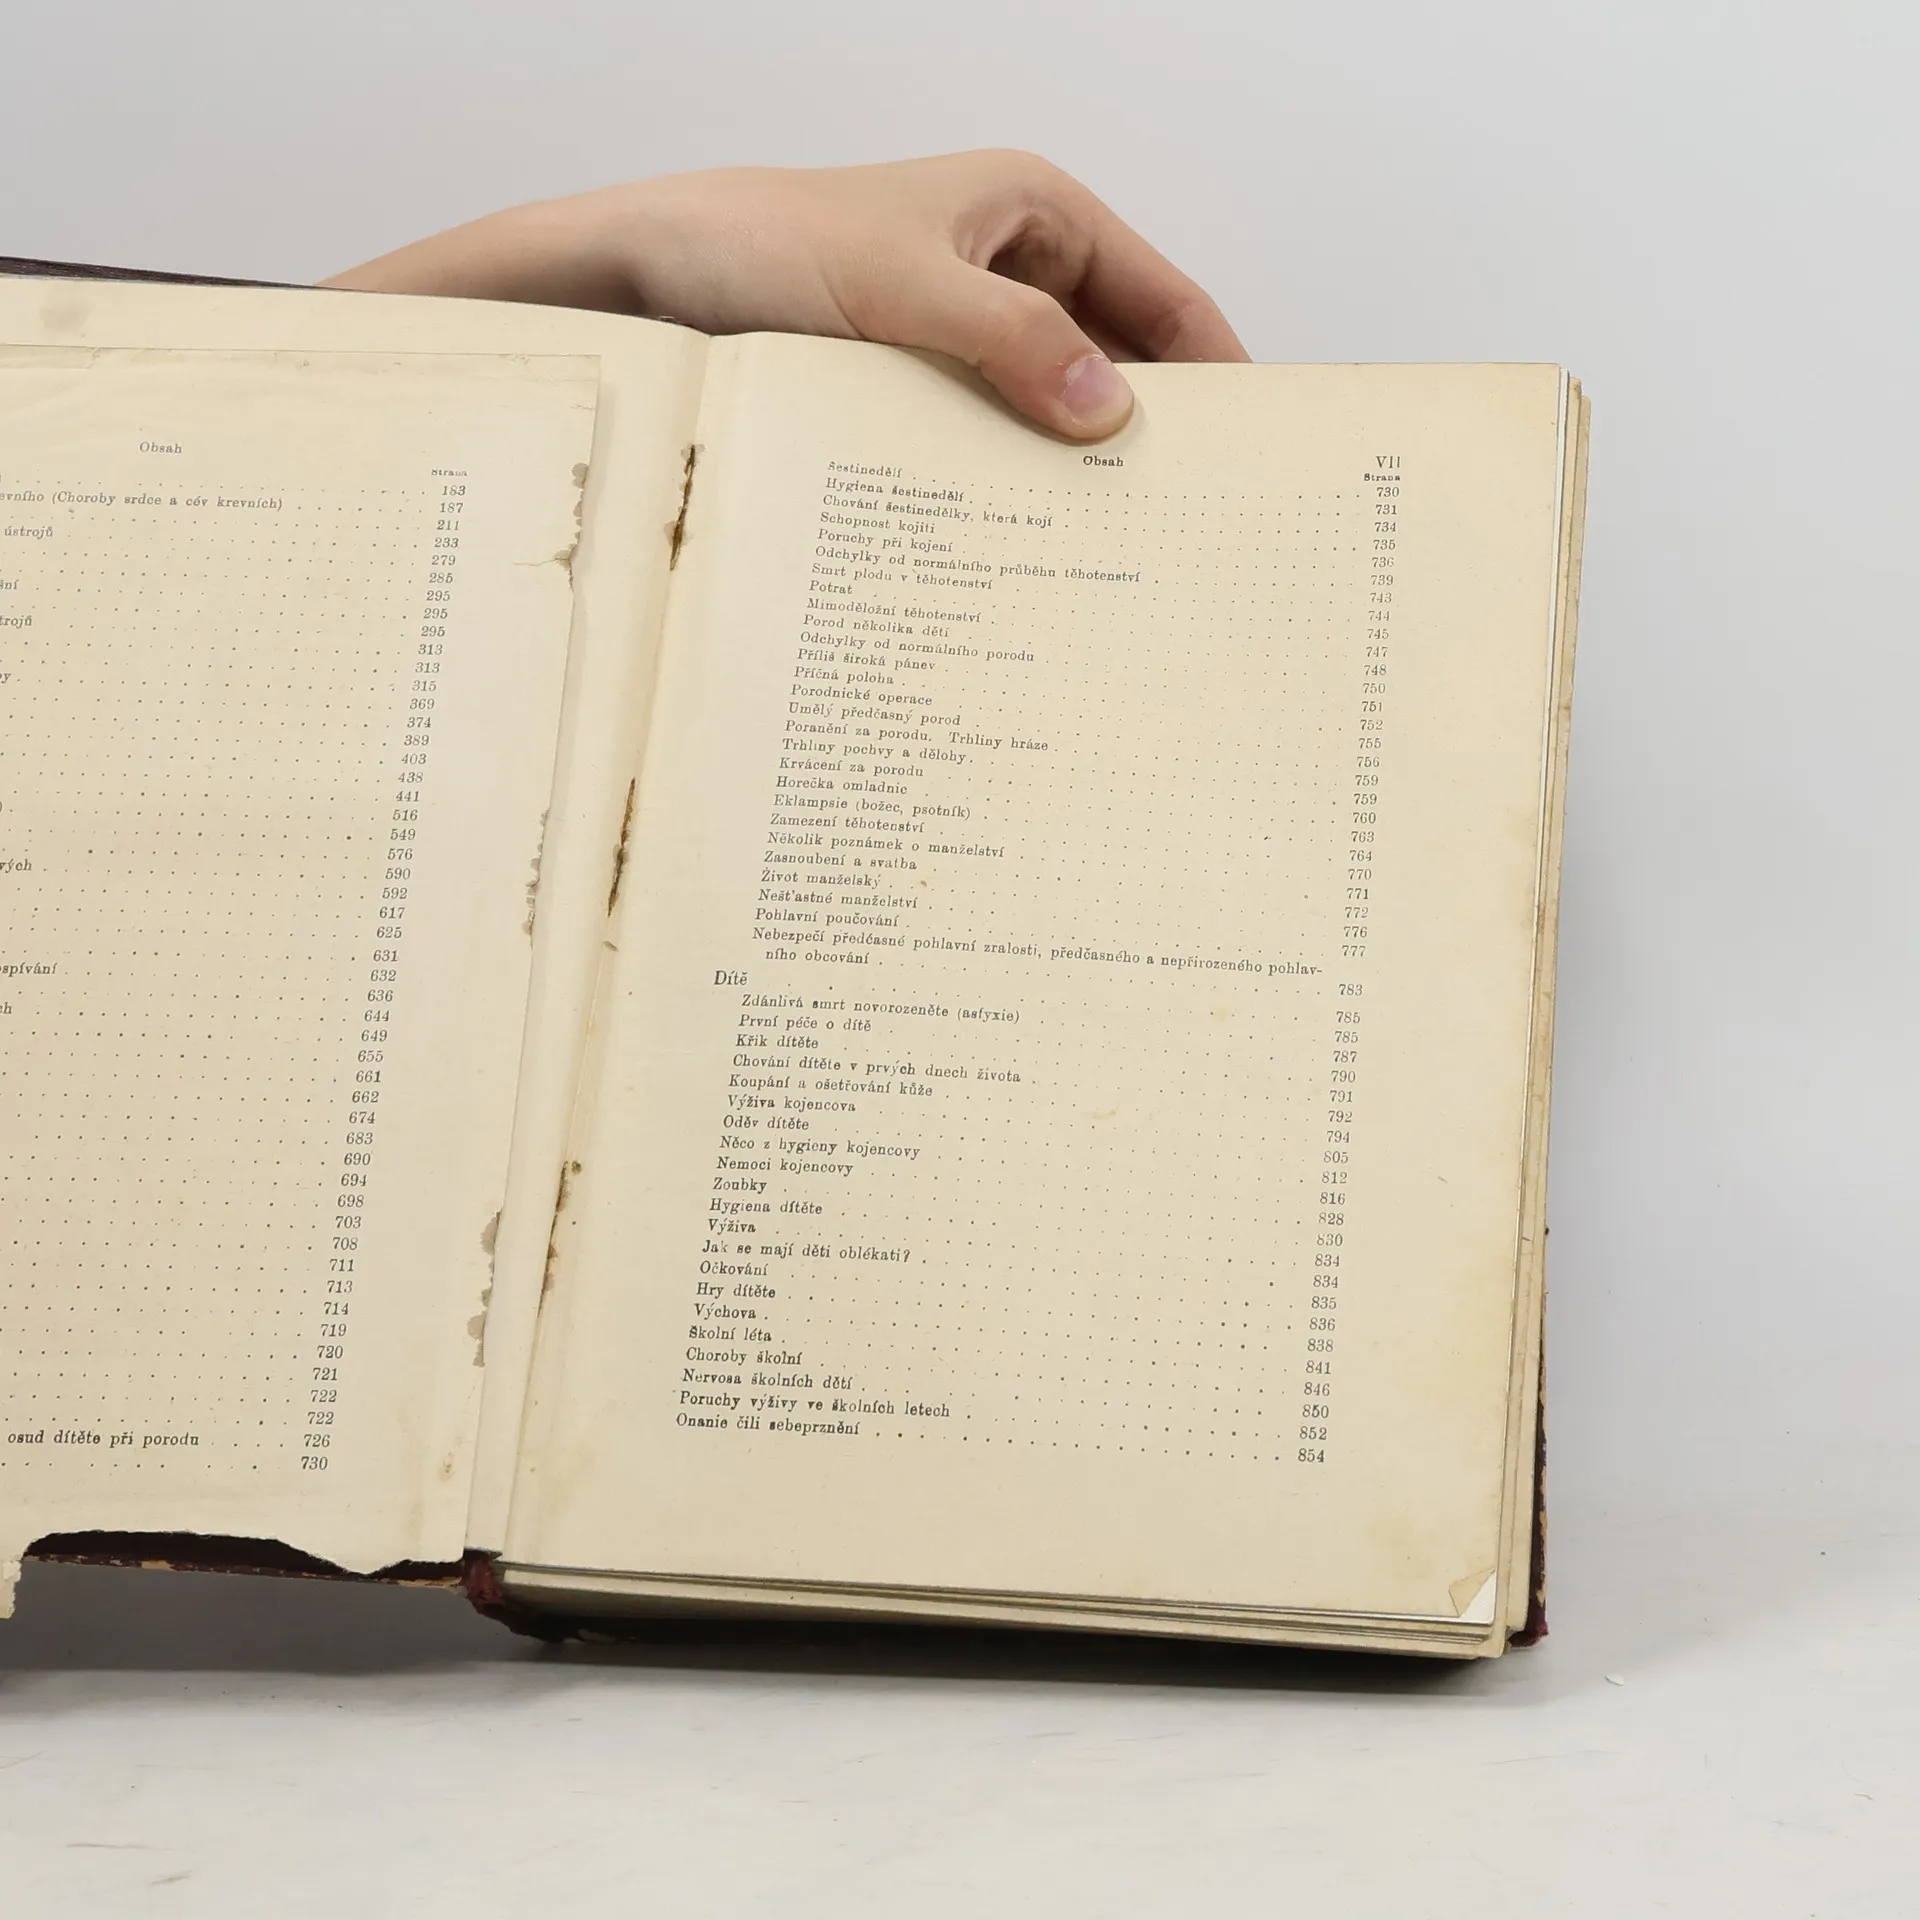 Obsah
Strana
183
(Choroby srdce a cév krevních) 187
211
ústrojů 233
279
285
295
295
295
313
313
315
369
374
389
403
438
441
516
549
576
590
592
617
625
631
632
636
644
649
655
661
662
674
683
690
694
698
703
708
711
713
714
719
720
721
722
722
osud dítěte při porodu . . . . 726
730
Obsah VII
Strana
Šestinedělí 730
Hygiena šestinedělí 731
Chování šestinedělky, která kojí 734
Schopnost kojiti 735
Poruchy při kojení 736
Odchylky od normálního průběhu těhotenství 739
Smrt plodu v těhotenství 743
Potrat 744
Mimoděložní těhotenství 745
Porod několika dětí 747
Odchylky od normálního porodu 748
Příliš široká pánev 750
Příčná poloha 751
Porodnické operace 752
Umělý předčasný porod 755
Poranění za porodu. Trhliny hráze 756
Trhliny pochvy a dělohy 759
Krvácení za porodu 759
Horečka omladnic 760
Eklampsie (božec, psotník) 763
Zamezení těhotenství 764
Několik poznámek o manželství 770
Zasnoubení a svatba 771
Život manželský 772
Nešťastné manželství 776
Pohlavní poučování 777
Nebezpečí předčasné pohlavní zralosti, předčasného a nepřirozeného pohlav-
ního obcování 783
Dítě 785
Zdánlivá smrt novorozeněte (asfyxie) 785
První péče o dítě 787
Křik dítěte 790
Chování dítěte v prvých dnech života 791
Koupání a ošetřování kůže 792
Výživa kojencova 794
Oděv dítěte 805
Něco z hygieny kojencovy 812
Nemoci kojencovy 816
Zoubky 828
Hygiena dítěte 830
Výživa 834
Jak se mají děti oblékati? 834
Očkování 835
Hry dítěte 836
Výchova 838
Školní léta 841
Choroby školní 846
Nervosa školních dětí 850
Poruchy výživy ve školních letech 852
Onanie čili sebeprznění 854